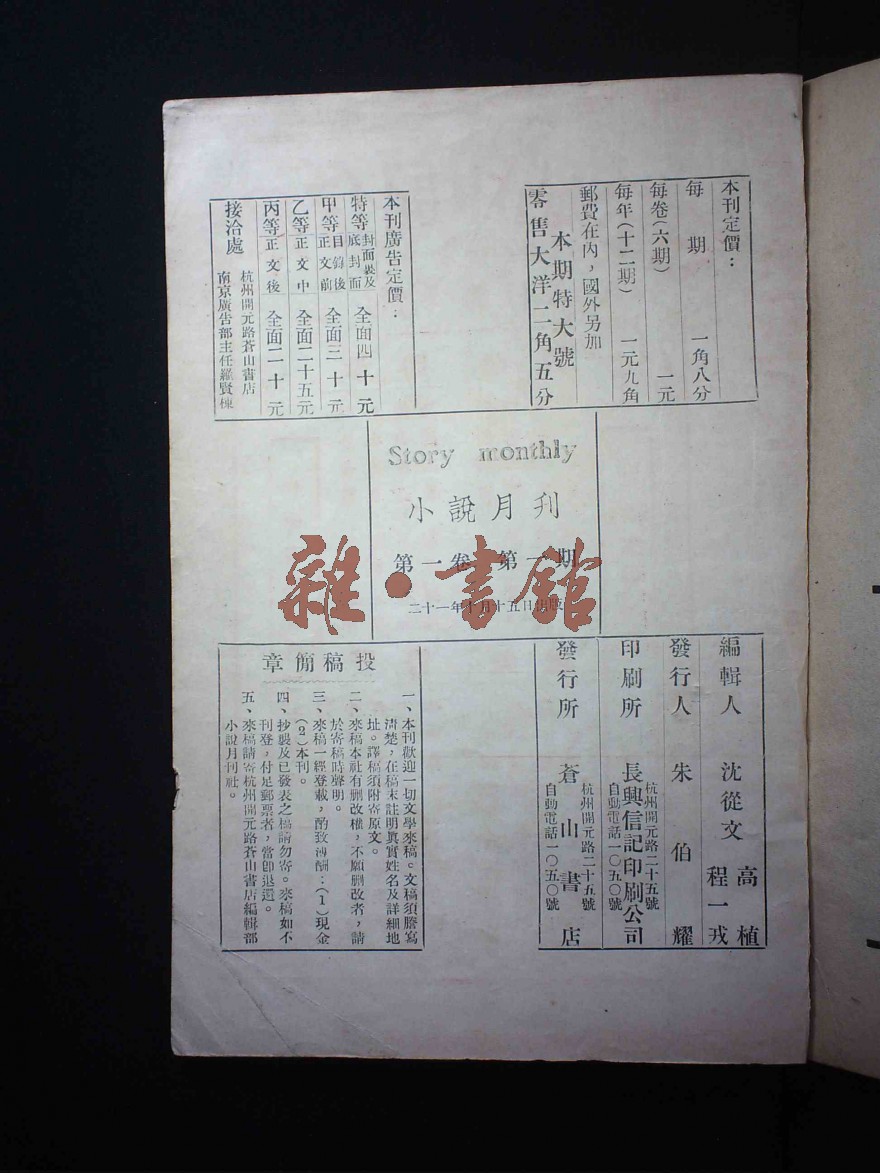 本刊定價：
每期 一角八分
每卷（六期） 一元
每年（十二期） 一元九角
郵費在內，國外另加
本期特大號
零售大洋二角五分
本刊廣告定價：
特等 封面裏及底封面 全面四十元
甲等 目錄後正文前 全面三十元
乙等 正文中 全面二十五元
丙等 正文後 全面二十元
接洽處 杭州開元路蒼山書店
南京廣告部主任羅賢棟
Story monthly
小說月刊
第一卷 第一期
二十一年十月十五日出版
雜·書館
編輯人 沈從文 高植 程一戎
發行人 朱伯耀
印刷所 長興信記印刷公司
杭州開元路二十五號
自動電話一〇五〇號
發行所 蒼山書店
杭州開元路二十五號
自動電話一〇五〇號
投稿簡章
一、本刊歡迎一切文學來稿。文稿須謄寫
清楚，在稿末註明眞實姓名及詳細地
址。譯稿須附寄原文。
二、來稿本社有刪改權，不願刪改者，請
於寄稿時聲明。
三、來稿一經登載，酌致薄酬：(1)現金
(2)本刊。
四、抄襲及已發表之稿請勿寄。來稿如不
刊登，付足郵票者，當卽退還。
五、來稿請寄杭州開元路蒼山書店編輯部
小說月刊社。